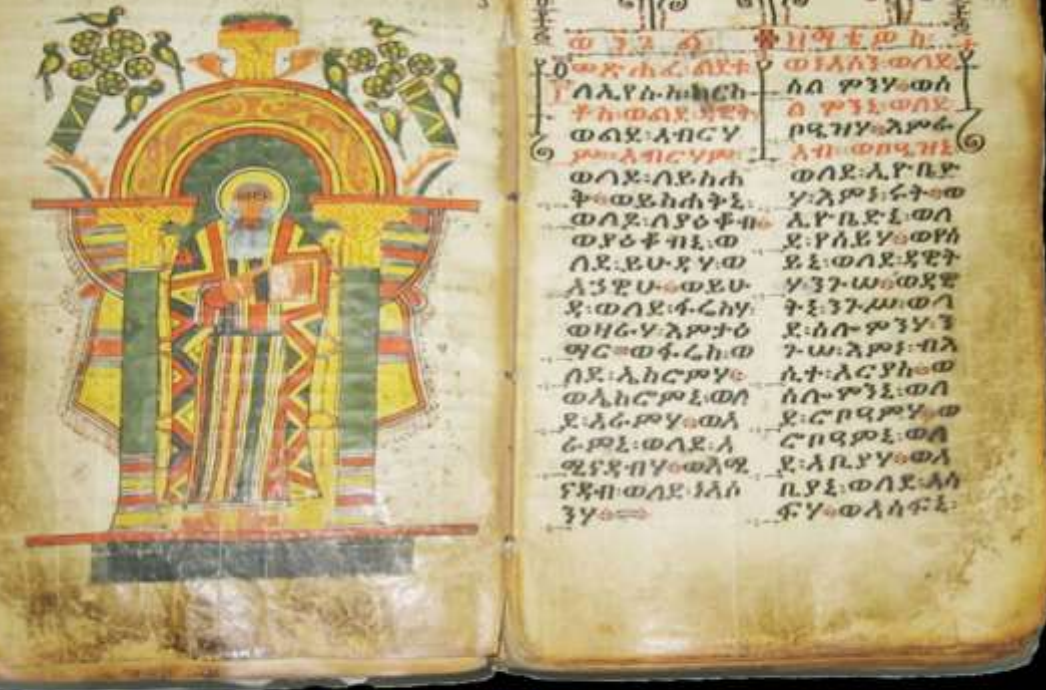 ወንጌል፡ ዘማቴዎስ፡
መጽሐፈ፡ልደቱ
ለኢየሱስ፡ክርስ
ቶስ፡ወልደ፡ዳዊት፡
ወልደ፡አብርሃ
ም፡አብርሃምሰ፡
ወለደ፡ለይስሐ
ቅ።ወይስሐቅኒ፡
ወለደ፡ለያዕቆብ።
ወያዕቆብኒ፡ወ
ለደ፡ይሁዳሃ፡ወ
አኃዊሁ።ወይሁ
ዳ፡ወለደ፡ፋሬስሃ
ወዛራሃ፡እምታዕ
ማር።ወፋሬስ፡ወ
ለደ፡ኤስሮምሃ።
ወኤስሮምኒ፡ወለ
ደ፡አራምሃ።ወአ
ራምኒ፡ወለደ፡አ
ሚናዳብሃ።ወአሚ
ናዳብ፡ወለደ፡ነአሶ
ንሃ።
ወነአሶን፡ወለደ፡
ሰሎምንሃ።ወሰ
ሎምንኒ፡ወለደ
ቦዔዝሃ።እምራ
አብ፡ወቦዔዝኒ
ወለደ፡ኢዮቤድ
ሃ፡እምነ፡ሩት።ወ
ኢዮቤድኒ፡ወለ
ደ፡የሴይሃ።ወየሴ
ይኒ፡ወለደ፡ዳዊት
ሃ፡ንጉሠ።ወዳዊ
ትኒ፡ንጉሥ፡ወለ
ደ፡ሰሎምንሃ፡ን
ጉሠ፡እምነ፡ብእ
ሲተ፡ኦርያስ።ወ
ሰሎምንኒ፡ወለ
ደ፡ሮቦዓምሃ።ወ
ሮቦዓምኒ፡ወለ
ደ፡አቢያሃ።ወአ
ቢያኒ፡ወለደ፡አሳ
ፍሃ።ወአሳፍኒ፡